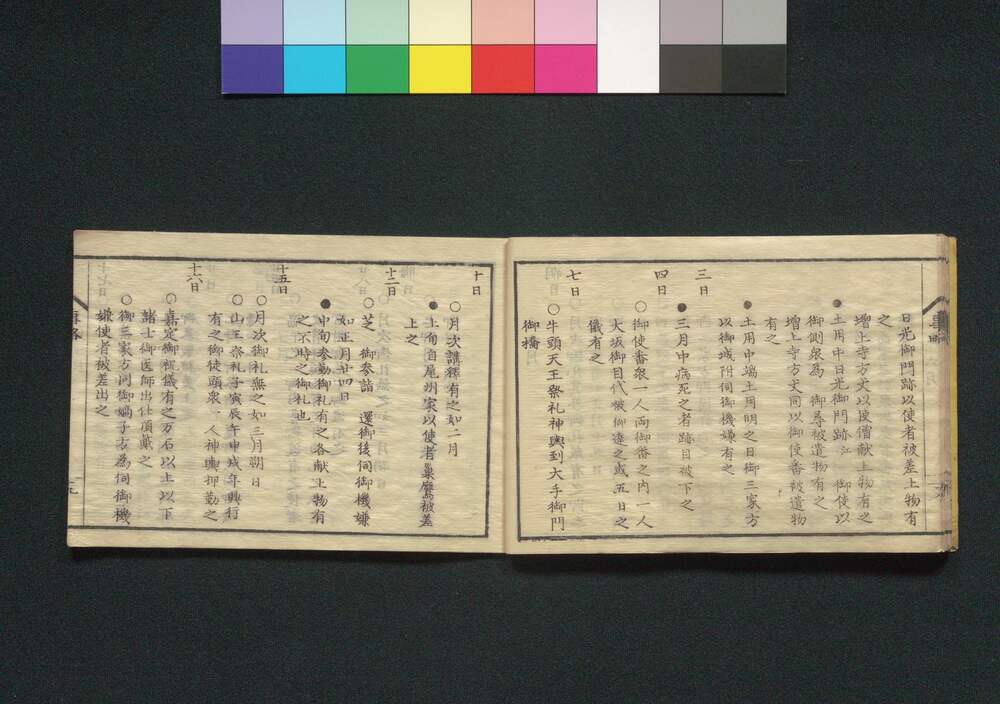 日光御門跡以使者被差上物有
之
増上寺方丈以使僧献上物有之
●土用中日光御門跡江 御使以
御側衆為 御尋被遣物有之
増上寺方丈同以御使番被遣物
有之
●土用中端土用明之日御三家方
以御城附伺御機嫌有之
三日
●三月中病死之者跡目被下之
四日
○御使番衆一人両御番之内一人
大坂御目代被仰遣之或五日之
儀有之
七日
○牛頭天王祭礼神輿到大手御門
御橋
十日
○月次講釈有之如二月
●上旬自尾州家以使者巣鷹被差
上之
十二日
○芝 御参詣 還御後伺御機嫌
如正月廿四日
●中旬参勤御礼有之各献上物有
之不時之御礼也
十五日
○月次御礼無之如三月朔日
○山王祭礼子寅辰午申戌年興行
有之御徒頭衆一人神輿押勤之
十六日
○嘉定御祝儀有之万石以上以下
諸士御医師出仕頂戴之
○御三家方同御嫡子方為伺御機
嫌使者被差出之